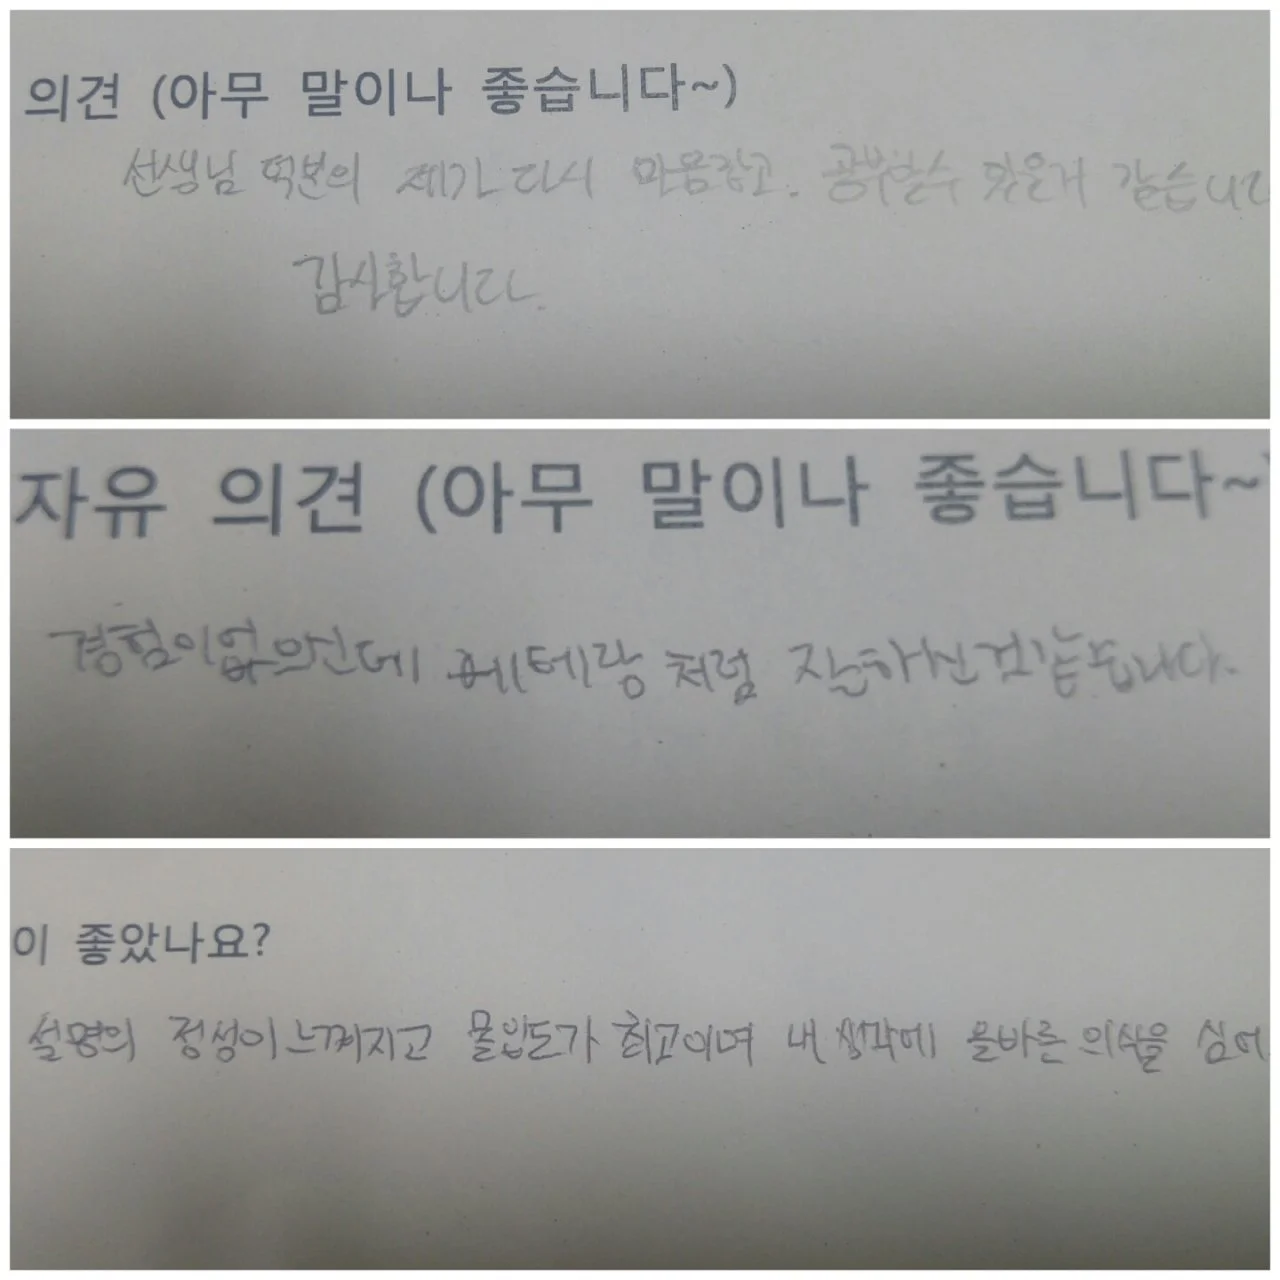 의견 (아무 말이나 좋습니다~)
선생님 덕분의 제가 다시 마음잡고. 공부할수 있은거 같습니다
감사합니다.
자유 의견 (아무 말이나 좋습니다~)
경험이없으신데 베테랑 처럼 잘하신것같습니다.
이 좋았나요?
설명의 정성이 느껴지고 몰입도가 최고이며 내 생각에 올바른 의식을 심어